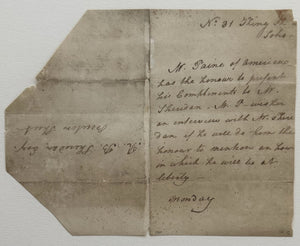 No. 31 King St
Soho
Mr. Paine of America
has the honour to present
his Compliments to Mr.
Sheridan. Mr. P wishes
an interview with Mr. Sheri
dan if he will do him the
honour to mention an hour
in which he will be at
liberty
Monday
R. B. Sheridan Esqr.
Bruton Street